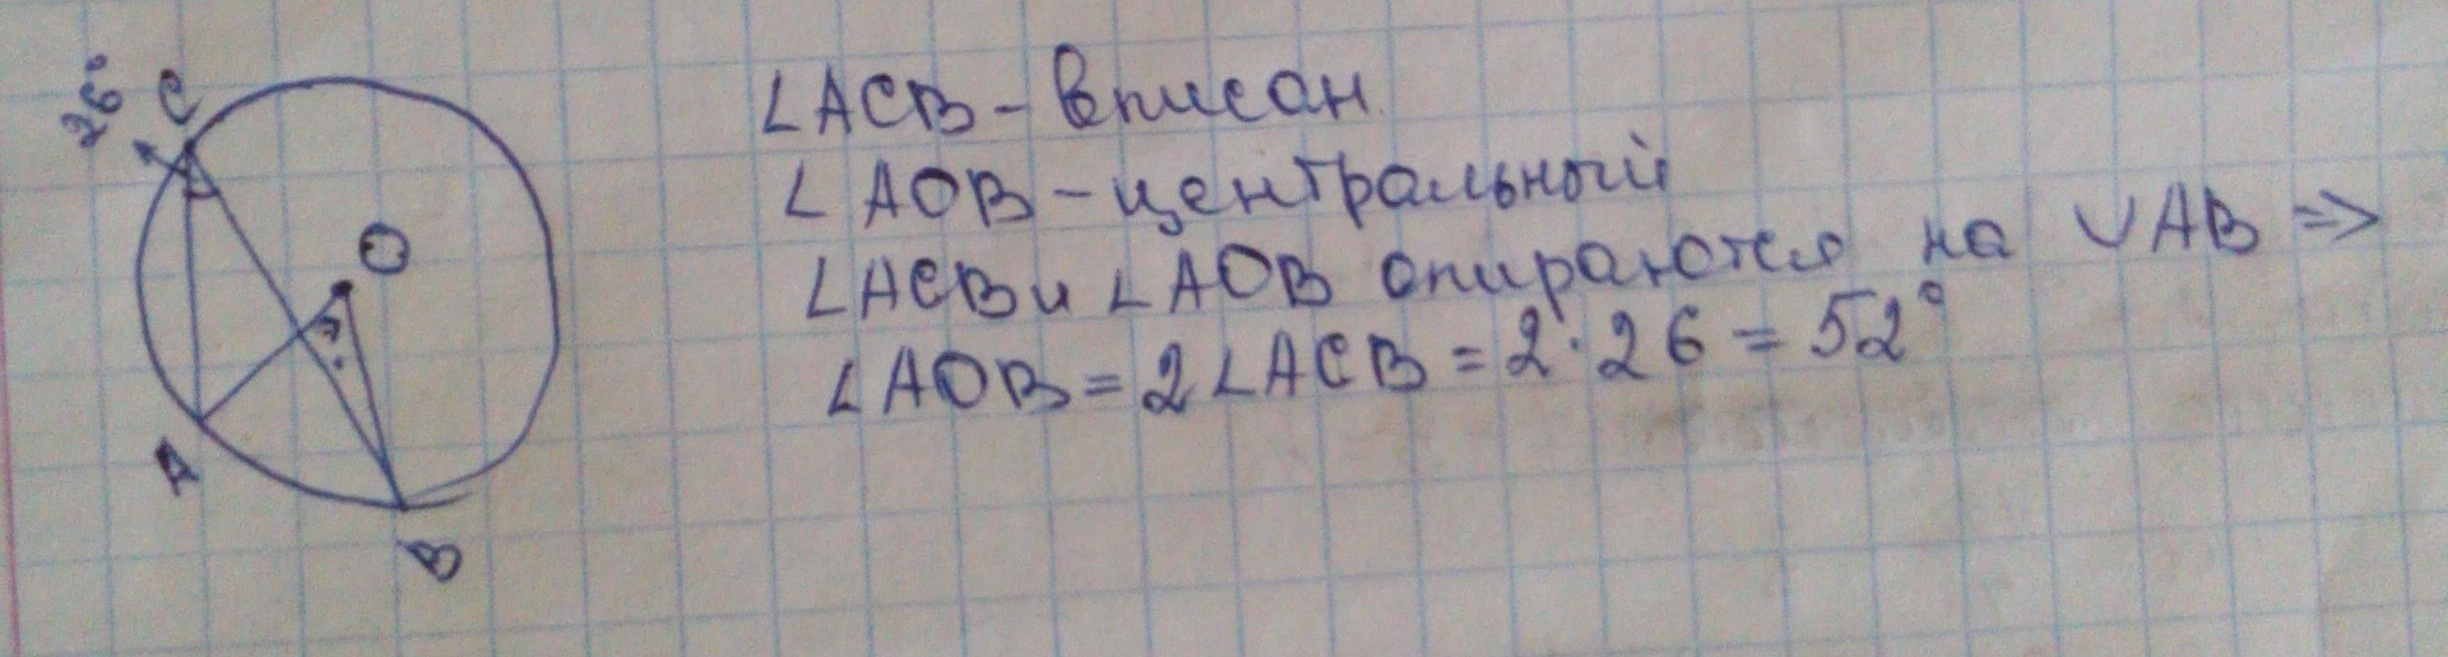 26° C
O
?
A
B
∠ACB – вписан
∠AOB – центральный
∠ACB и ∠AOB опираются на ∪AB ⇒
∠AOB = 2∠ACB = 2·26 = 52°